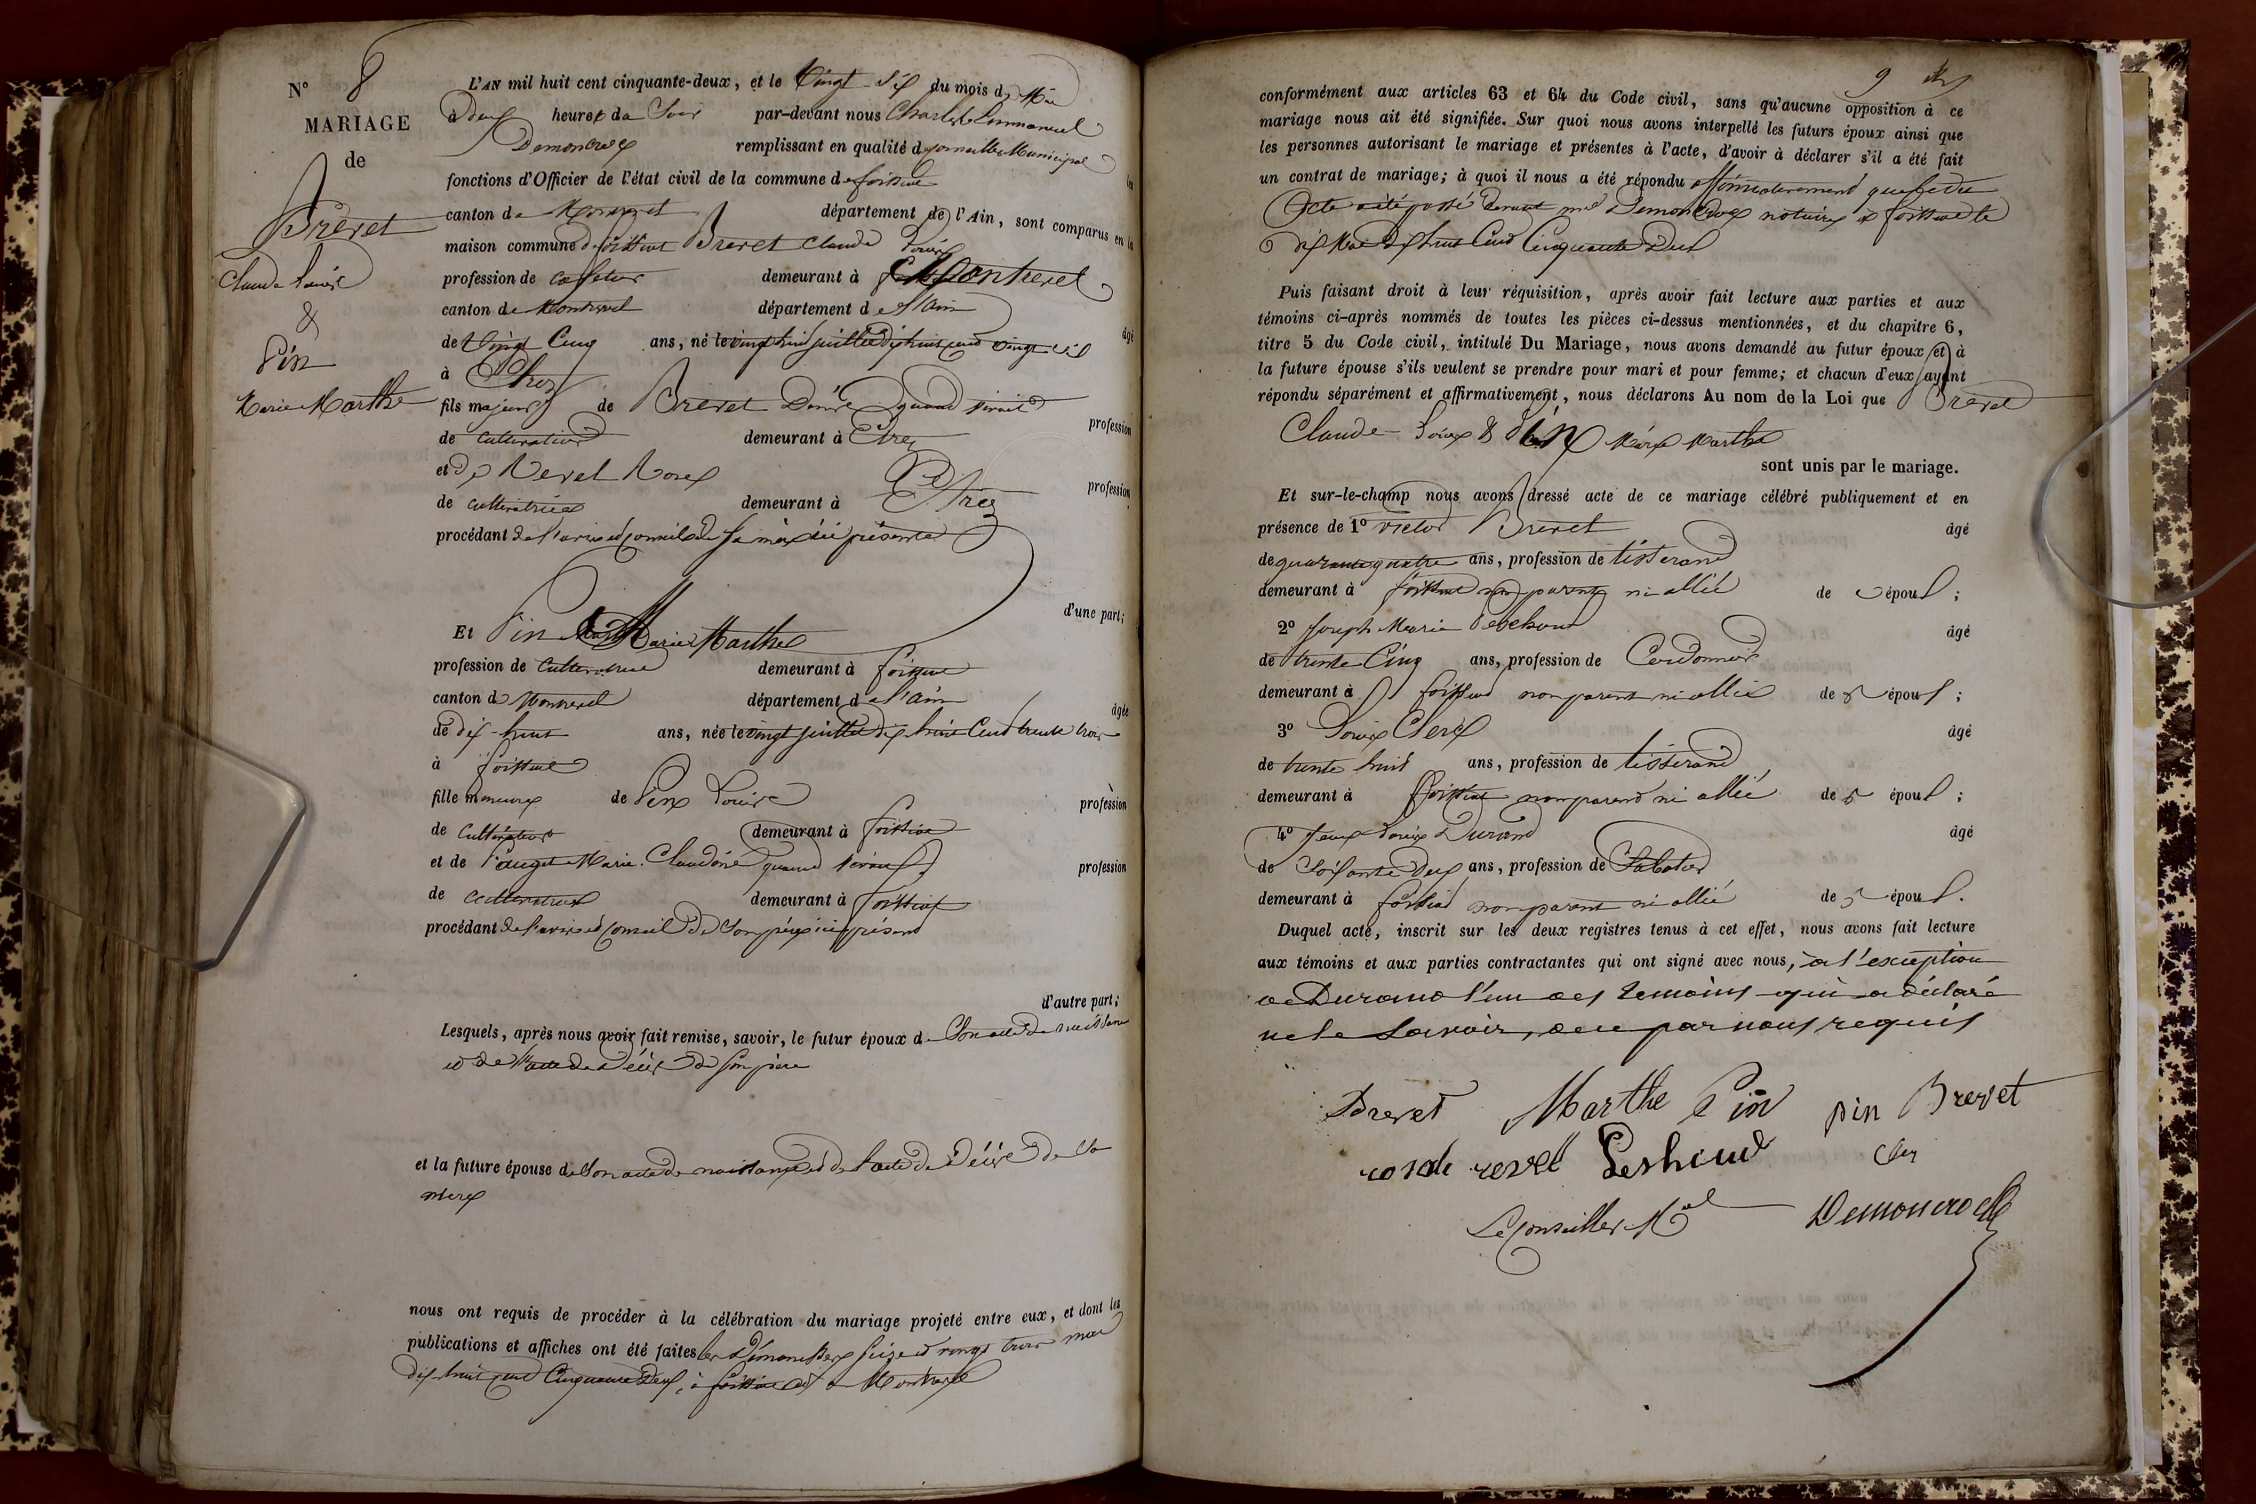 N° 8
MARIAGE
de
Brevet
Claude Louis
&
Pin
Marie Marthe
L'AN mil huit cent cinquante-deux, et le Vingt six du mois de Mai
à deux heures du Soir par-devant nous Charles Emmanuel
Demoncroix remplissant en qualité de Conseiller Municipal les
fonctions d'Officier de l'état civil de la commune de foissiat
canton de Montrevel département de l'Ain, sont comparus en la
maison commune de foissiat Brevet Claude Louis
profession de cafetier demeurant à Montrevel
canton de Montrevel département de l'ain âgé
de Vingt Cinq ans, né le vingt huit juillet dix huit cent vingt six
à Etrez
fils majeur de Brevet Denis quand vivait profession
de cultivateur demeurant à Etrez
et de Revel Rose profession
de cultivatrice demeurant à Etrez
procédant de l'avis et conseil de sa mère ici présente
d'une part;
Et Pin Marie Marthe
profession de cultivatrice demeurant à foissiat
canton de Montrevel département de l'ain âgée
de dix-huit ans, née le vingt juillet dix huit Cent trente trois
à foissiat
fille mineure de Pin Louis profession
de Cultivateur demeurant à foissiat
et de Marie Claudine quand vivait profession
de cultivatrice demeurant à foissiat
procédant de l'avis et Conseil de Son père ici présent
d'autre part;
Lesquels, après nous avoir fait remise, savoir, le futur époux de Son acte de naissance
et de l'acte de Décès de Son père
et la future épouse de Son acte de naissance et de l'acte de Décès de Sa
mère
nous ont requis de procéder à la célébration du mariage projeté entre eux, et dont les
publications et affiches ont été faites les Dimanches Seize et vingt trois mai
dix huit cent Cinquante Deux, à foissiat et à Montrevel
9
conformément aux articles 63 et 64 du Code civil, sans qu'aucune opposition à ce
mariage nous ait été signifiée. Sur quoi nous avons interpellé les futurs époux ainsi que
les personnes autorisant le mariage et présentes à l'acte, d'avoir à déclarer s'il a été fait
un contrat de mariage; à quoi il nous a été répondu affirmativement que le dit
Acte a été passé devant me Demoncroix notaire à foissiat le
dix Mai Dix huit Cent Cinquante Deux
Puis faisant droit à leur réquisition, après avoir fait lecture aux parties et aux
témoins ci-après nommés de toutes les pièces ci-dessus mentionnées, et du chapitre 6,
titre 5 du Code civil, intitulé Du Mariage, nous avons demandé au futur époux et à
la future épouse s'ils veulent se prendre pour mari et pour femme; et chacun d'eux ayant
répondu séparément et affirmativement, nous déclarons Au nom de la Loi que Brevet
Claude Louis & Pin Marie Marthe
sont unis par le mariage.
Et sur-le-champ nous avons dressé acte de ce mariage célébré publiquement et en
présence de 1° Victor Brevet âgé
de quarante quatre ans, profession de tisserand
demeurant à foissiat non parent ni allié des époux;
2° Joseph Marie âgé
de trente Cinq ans, profession de Cordonnier
demeurant à foissiat non parent ni allié des époux;
3° Louis Clerc âgé
de trente huit ans, profession de tisserand
demeurant à foissiat non parent ni allié des époux;
4° Jean Louis Durand âgé
de Soixante Deux ans, profession de Sabotier
demeurant à foissiat non parent ni allié des époux.
Duquel acte, inscrit sur les deux registres tenus à cet effet, nous avons fait lecture
aux témoins et aux parties contractantes qui ont signé avec nous, à l'exception
de Durand l'un des témoins qui a déclaré
ne le Savoir, de ce par nous requis
Brevet Marthe Pin Pin Brevet
rosale revel Peshoud Clerc
Le Conseiller Mal Demoncroix